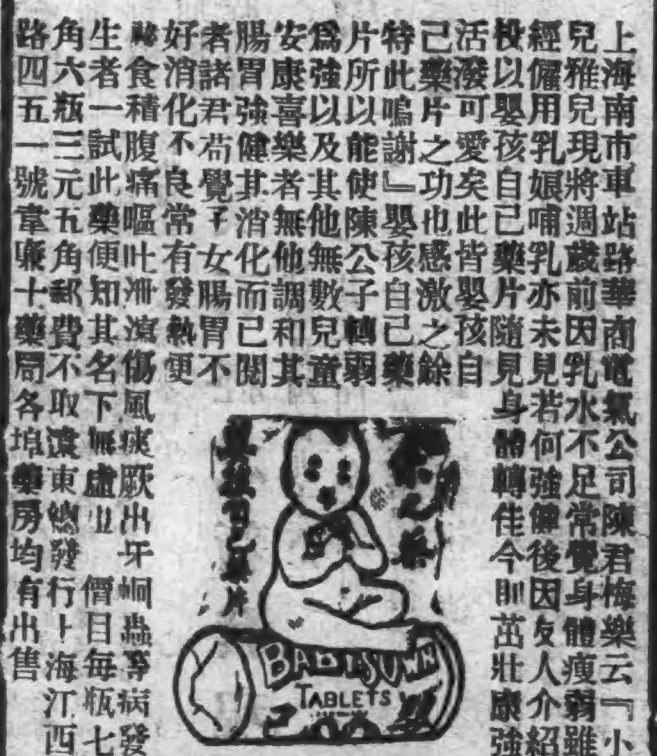 上海南市車站路華商電氣公司陳君梅樂云『小
兒雅兒現將週歲前因乳水不足常覺身體瘦弱雖
經僱用乳娘哺乳亦未見若何強健後因友人介紹
投以嬰孩自己藥片隨見身體轉佳今則茁壯康強
活潑可愛矣此皆嬰孩自
己藥片之功也感激之餘
特此鳴謝』嬰孩自己藥
片所以能使陳公子轉弱
爲強以及其他無數兒童
安康喜樂者無他調和其
腸胃強健其消化而已閱
者諸君苟覺子女腸胃不
好消化不良常有發熱便
祕食積腹痛嘔吐泄瀉傷風痰厥出牙蛔蟲等病發
生者一試此藥便知其名下無虛也 價目每瓶七
角六瓶三元五角郵費不取遠東總發行上海江西
路四五一號韋廉士藥局各埠藥房均有出售
嬰孩自己藥片
BABY'S OWN
TABLETS